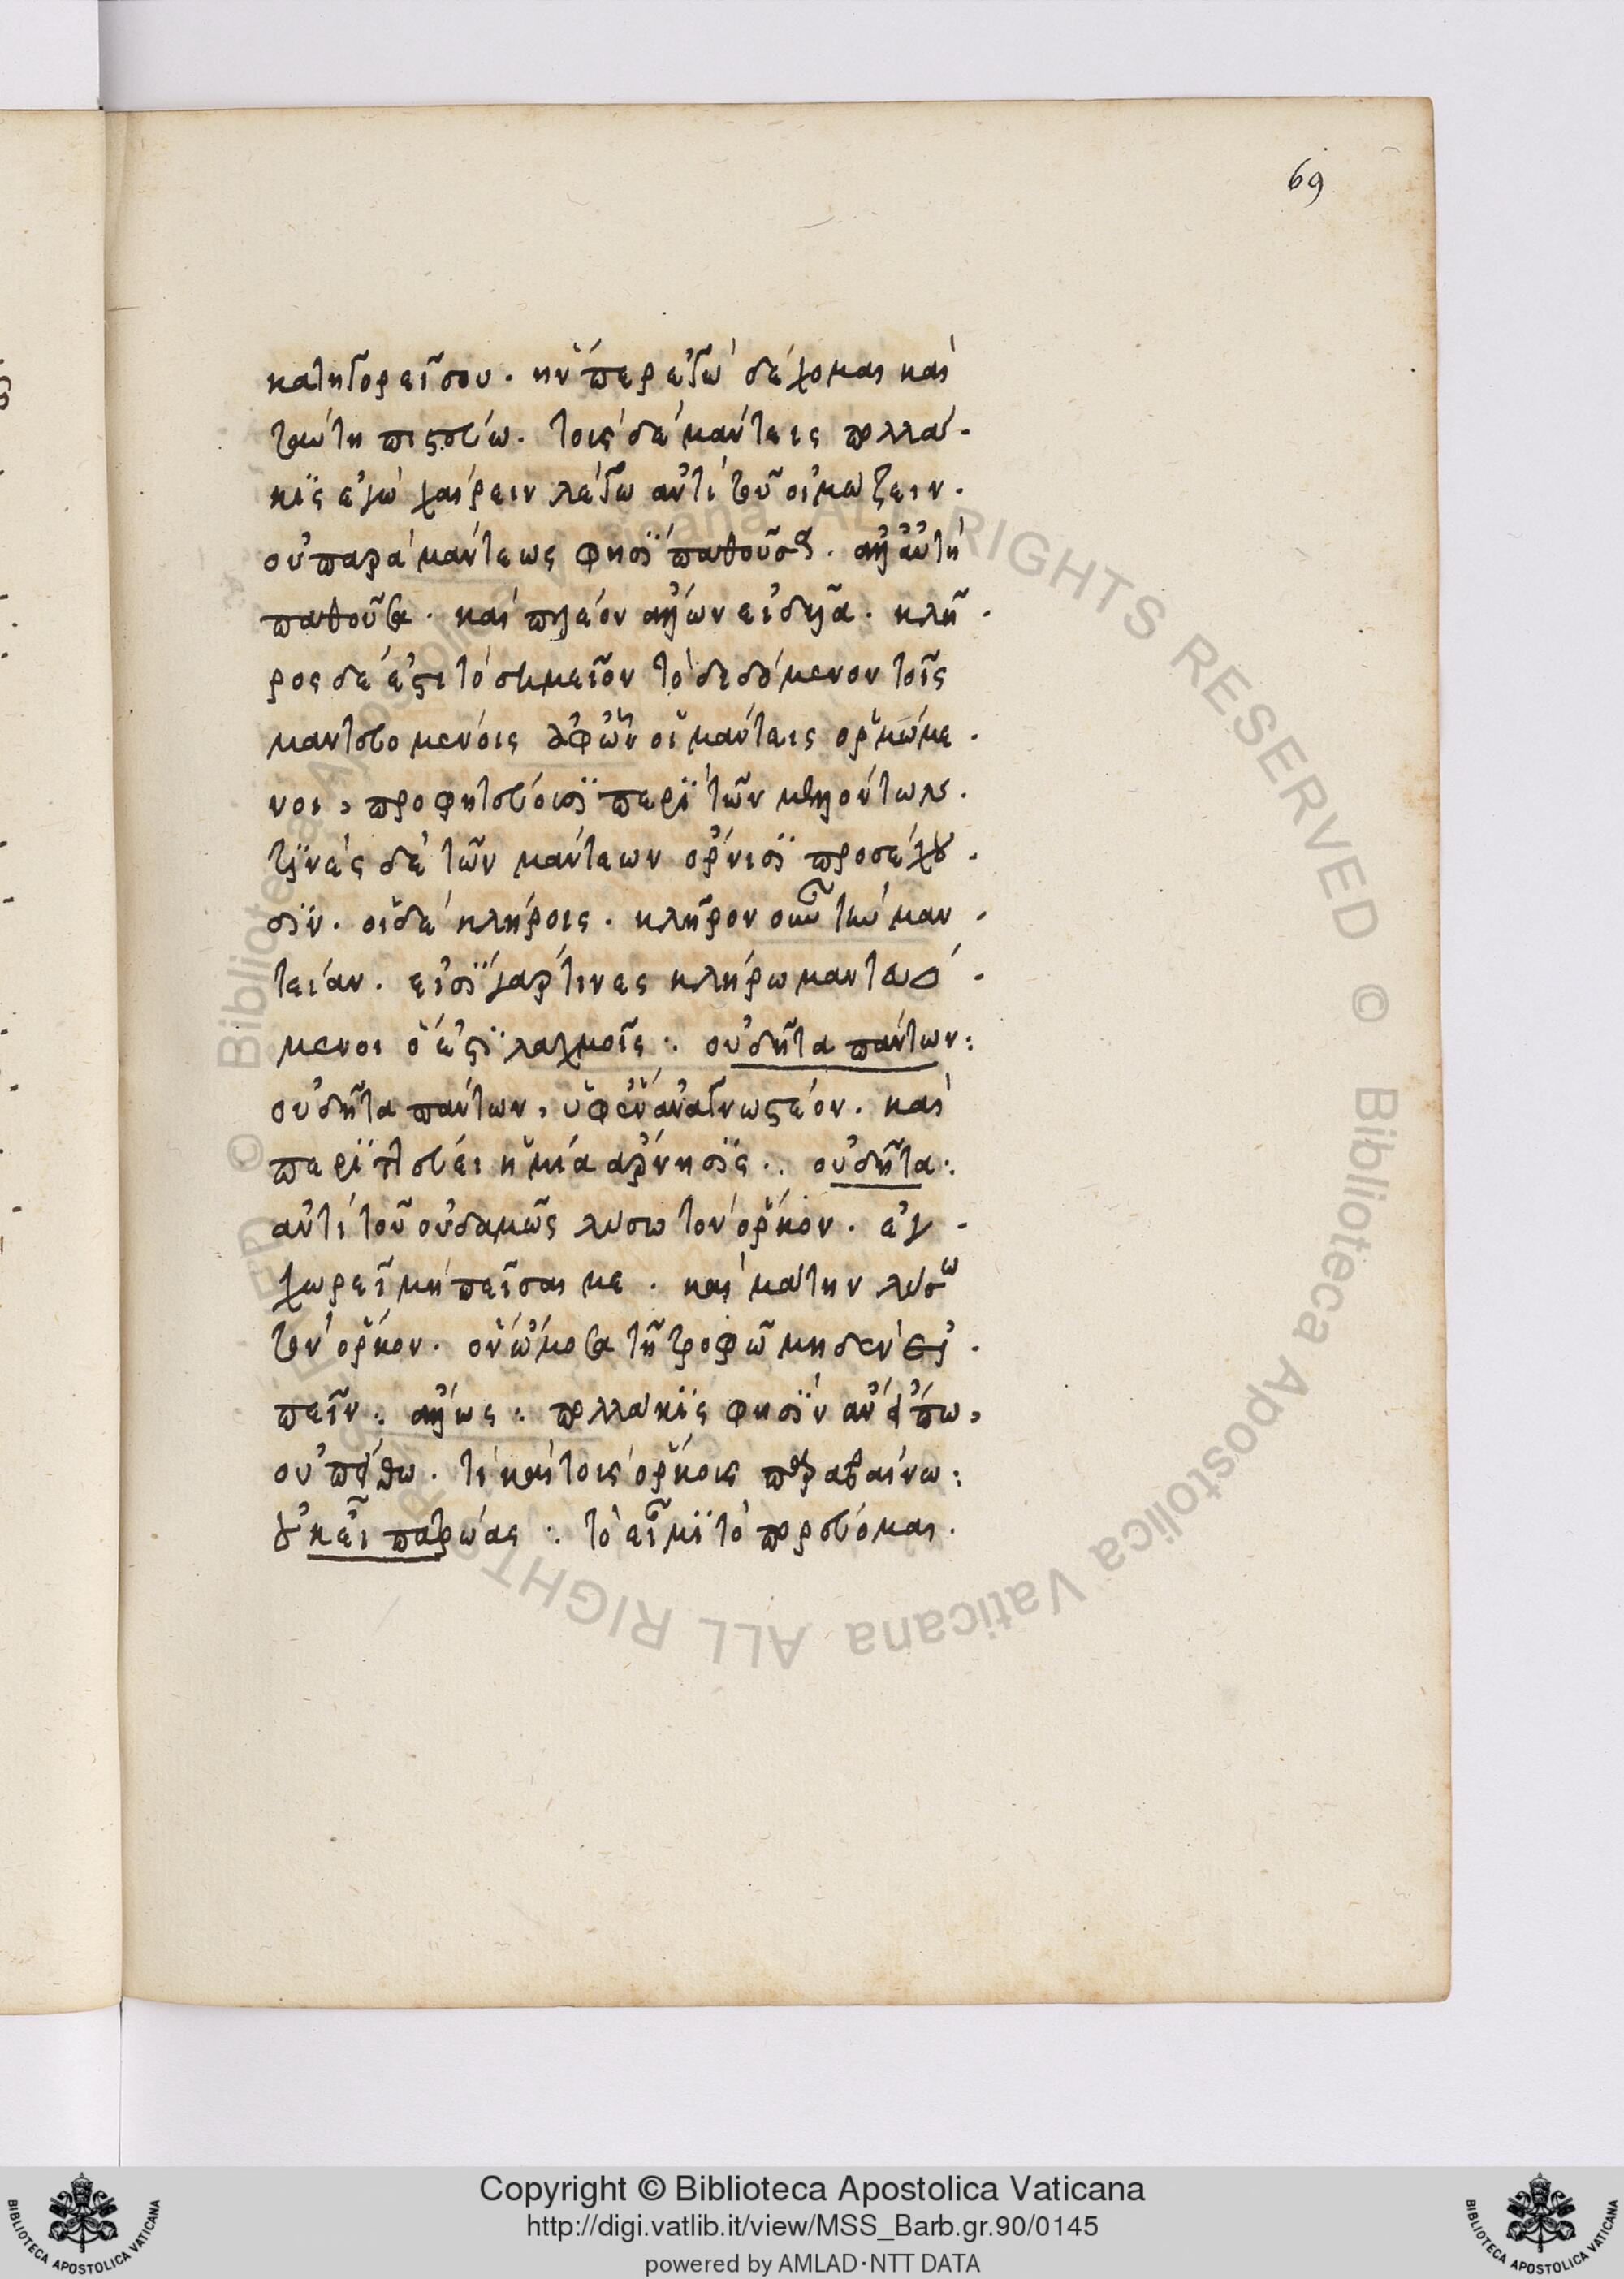 69
κατηγορεῖ σου. ἥν περ ἐγὼ δέχομαι καὶ
ταύτῃ πιστεύω. τοῖς δὲ μάντεις πολλά-
κις ἐγὼ χαίρειν λέγω ἀντὶ τοῦ οἰμώζειν.
οὐ παρὰ μάντεως φησὶ παθοῦσα. ἀλλ' αὐτὴ
παθοῦσα. καὶ πλέον ἄλλων εἰδυῖα. κλῆ-
ρος δέ ἐστι τὸ σημεῖον τὸ διδόμενον τοῖς
μαντευομένοις ἀφ' ὧν οἱ μάντεις ὁρμώμε-
νοι, προφητεύουσι περὶ τῶν μελλόντων.
τινὲς δὲ τῶν μάντεων ὄρνισι προσέχου-
σιν. οἱ δὲ κλήροις. κλῆρον οὖν τὴν μαν-
τείαν. εἰσὶ γάρ τινες κλήρω μαντευό-
μενοι ὅ ἐστι λαχμοῖς: οὐ δῆτα πάντων:
οὐ δῆτα πάντων, ὑφὲν ἀναγνωστέον. καὶ
περιττεύει ἡ μία ἄρνησις: οὐ δῆτα:
ἀντὶ τοῦ οὐδαμῶς λύσω τὸν ὅρκον. ἐγ-
χωρεῖ μὴ πεῖσαί με. καὶ μάτην λύσω
τὸν ὅρκον. ὃν ὤμοσα τῇ τροφῷ μηδὲν εἰ-
πεῖν: ἄλλως: πολλάκις φησὶν ἂν εἴπω,
οὐ πείθω. τί καὶ τοῖς ὅρκοις παραβαίνω:
οὐκ εἶ πατρώας: τὸ εἶμι τὸ πορεύομαι.
Copyright © Biblioteca Apostolica Vaticana
http://digi.vatlib.it/view/MSS_Barb.gr.90/0145
powered by AMLAD·NTT DATA
BIBLIOTECA APOSTOLICA VATICANA
BIBLIOTECA APOSTOLICA VATICANA